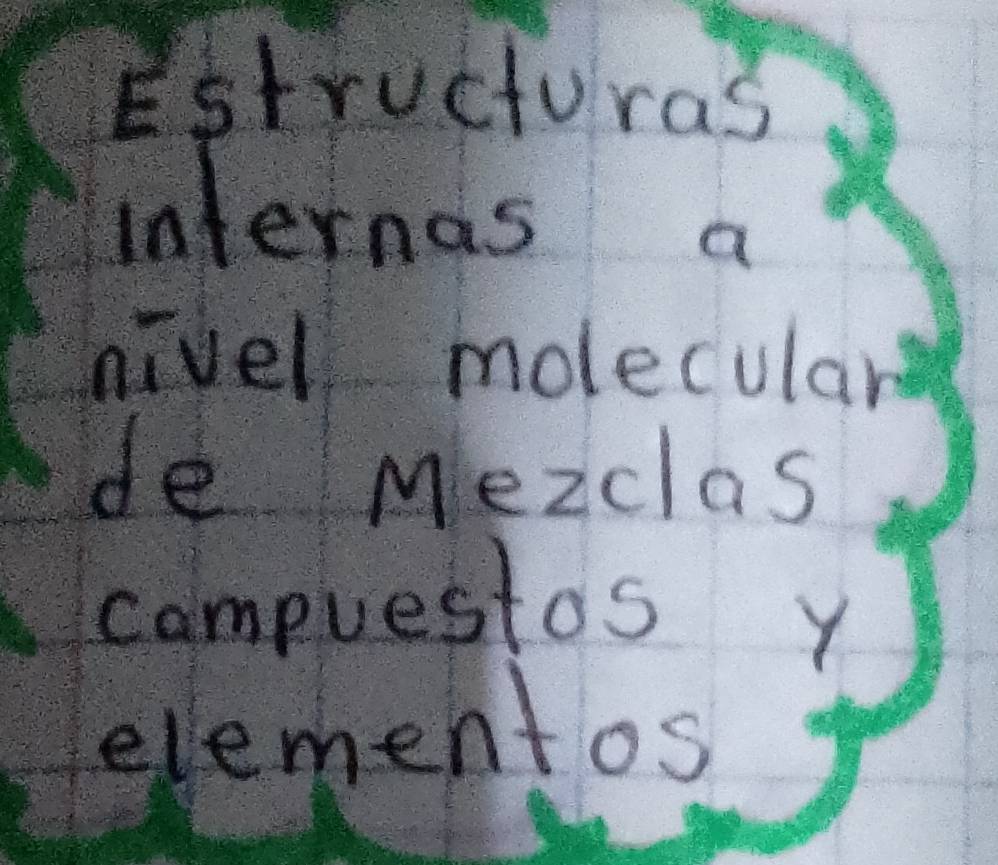 Estructuras
internas a
nivel molecular
de Mezclas
compuestos y
elementos